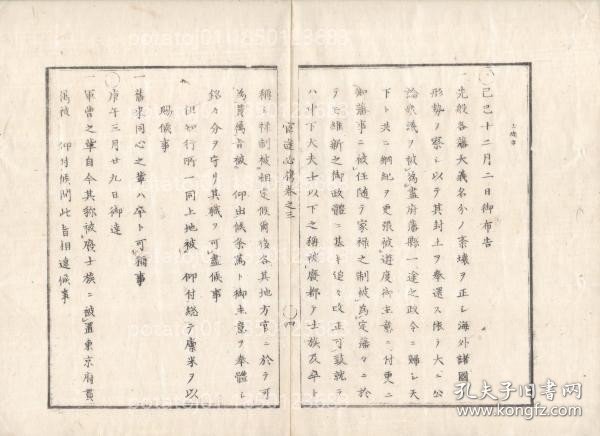 士族卒
己巳十二月二日御布告
一先般各藩大義名分ノ紊壊ヲ正シ海外諸國
形勢ヲ察シ以テ其封土ヲ奉還ス依テ大ニ公
論衆議ヲ被為盡府藩縣一途之政令ニ歸シ天
下ト共ニ綱紀ヲ更張被遊度御主意ニ付更ニ
御藩事ニ被任隨テ家禄之制被為定藩々ニ於
テモ維新之御政體ニ基キ追々改正可致就テ
ハ中下大夫士以下之稱被廢都テ士族及卒ト
官途必携巻之三
〇四
稱シ禄制被相定候尓後各其地方官ニ於テ可
為貫属旨被 仰出候条萬々御主意ヲ奉體シ
銘々分ヲ守リ其職ヲ可盡候事
但知行所一同上地被 仰付總テ廩米ヲ以
賜候事
一舊来同心之輩ハ卒ト可稱事
〇庚午三月廿九日御達
一軍曹之輩自今其称被廢士族ニ被置東京府貫
属被 仰付候間此旨相達候事
potatoj01
1850123683
孔夫子旧书网
www.kongfz.com